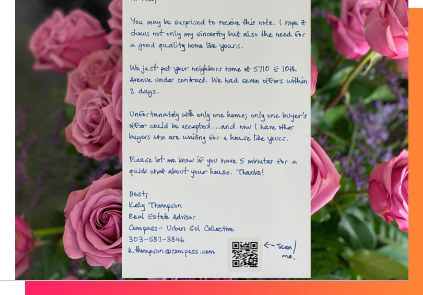 You may be surprised to receive this note. I hope it
shows not only my sincerity but also the need for
a good quality home like yours.
We just put your neighbors home at 5710 E 10th
Avenue under contract. We had seven offers within
2 days.
Unfortunately with only one home, only one buyer's
offer could be accepted...and now I have other
buyers who are waiting for a house like yours.
Please let me know if you have 5 minutes for a
quick chat about your house. Thanks!
Best,
Kelly Thompson
Real Estate Advisor
Compass - Urban Sol Collective
303-587-3846
k.thompson@compass.com
← Scan
me!